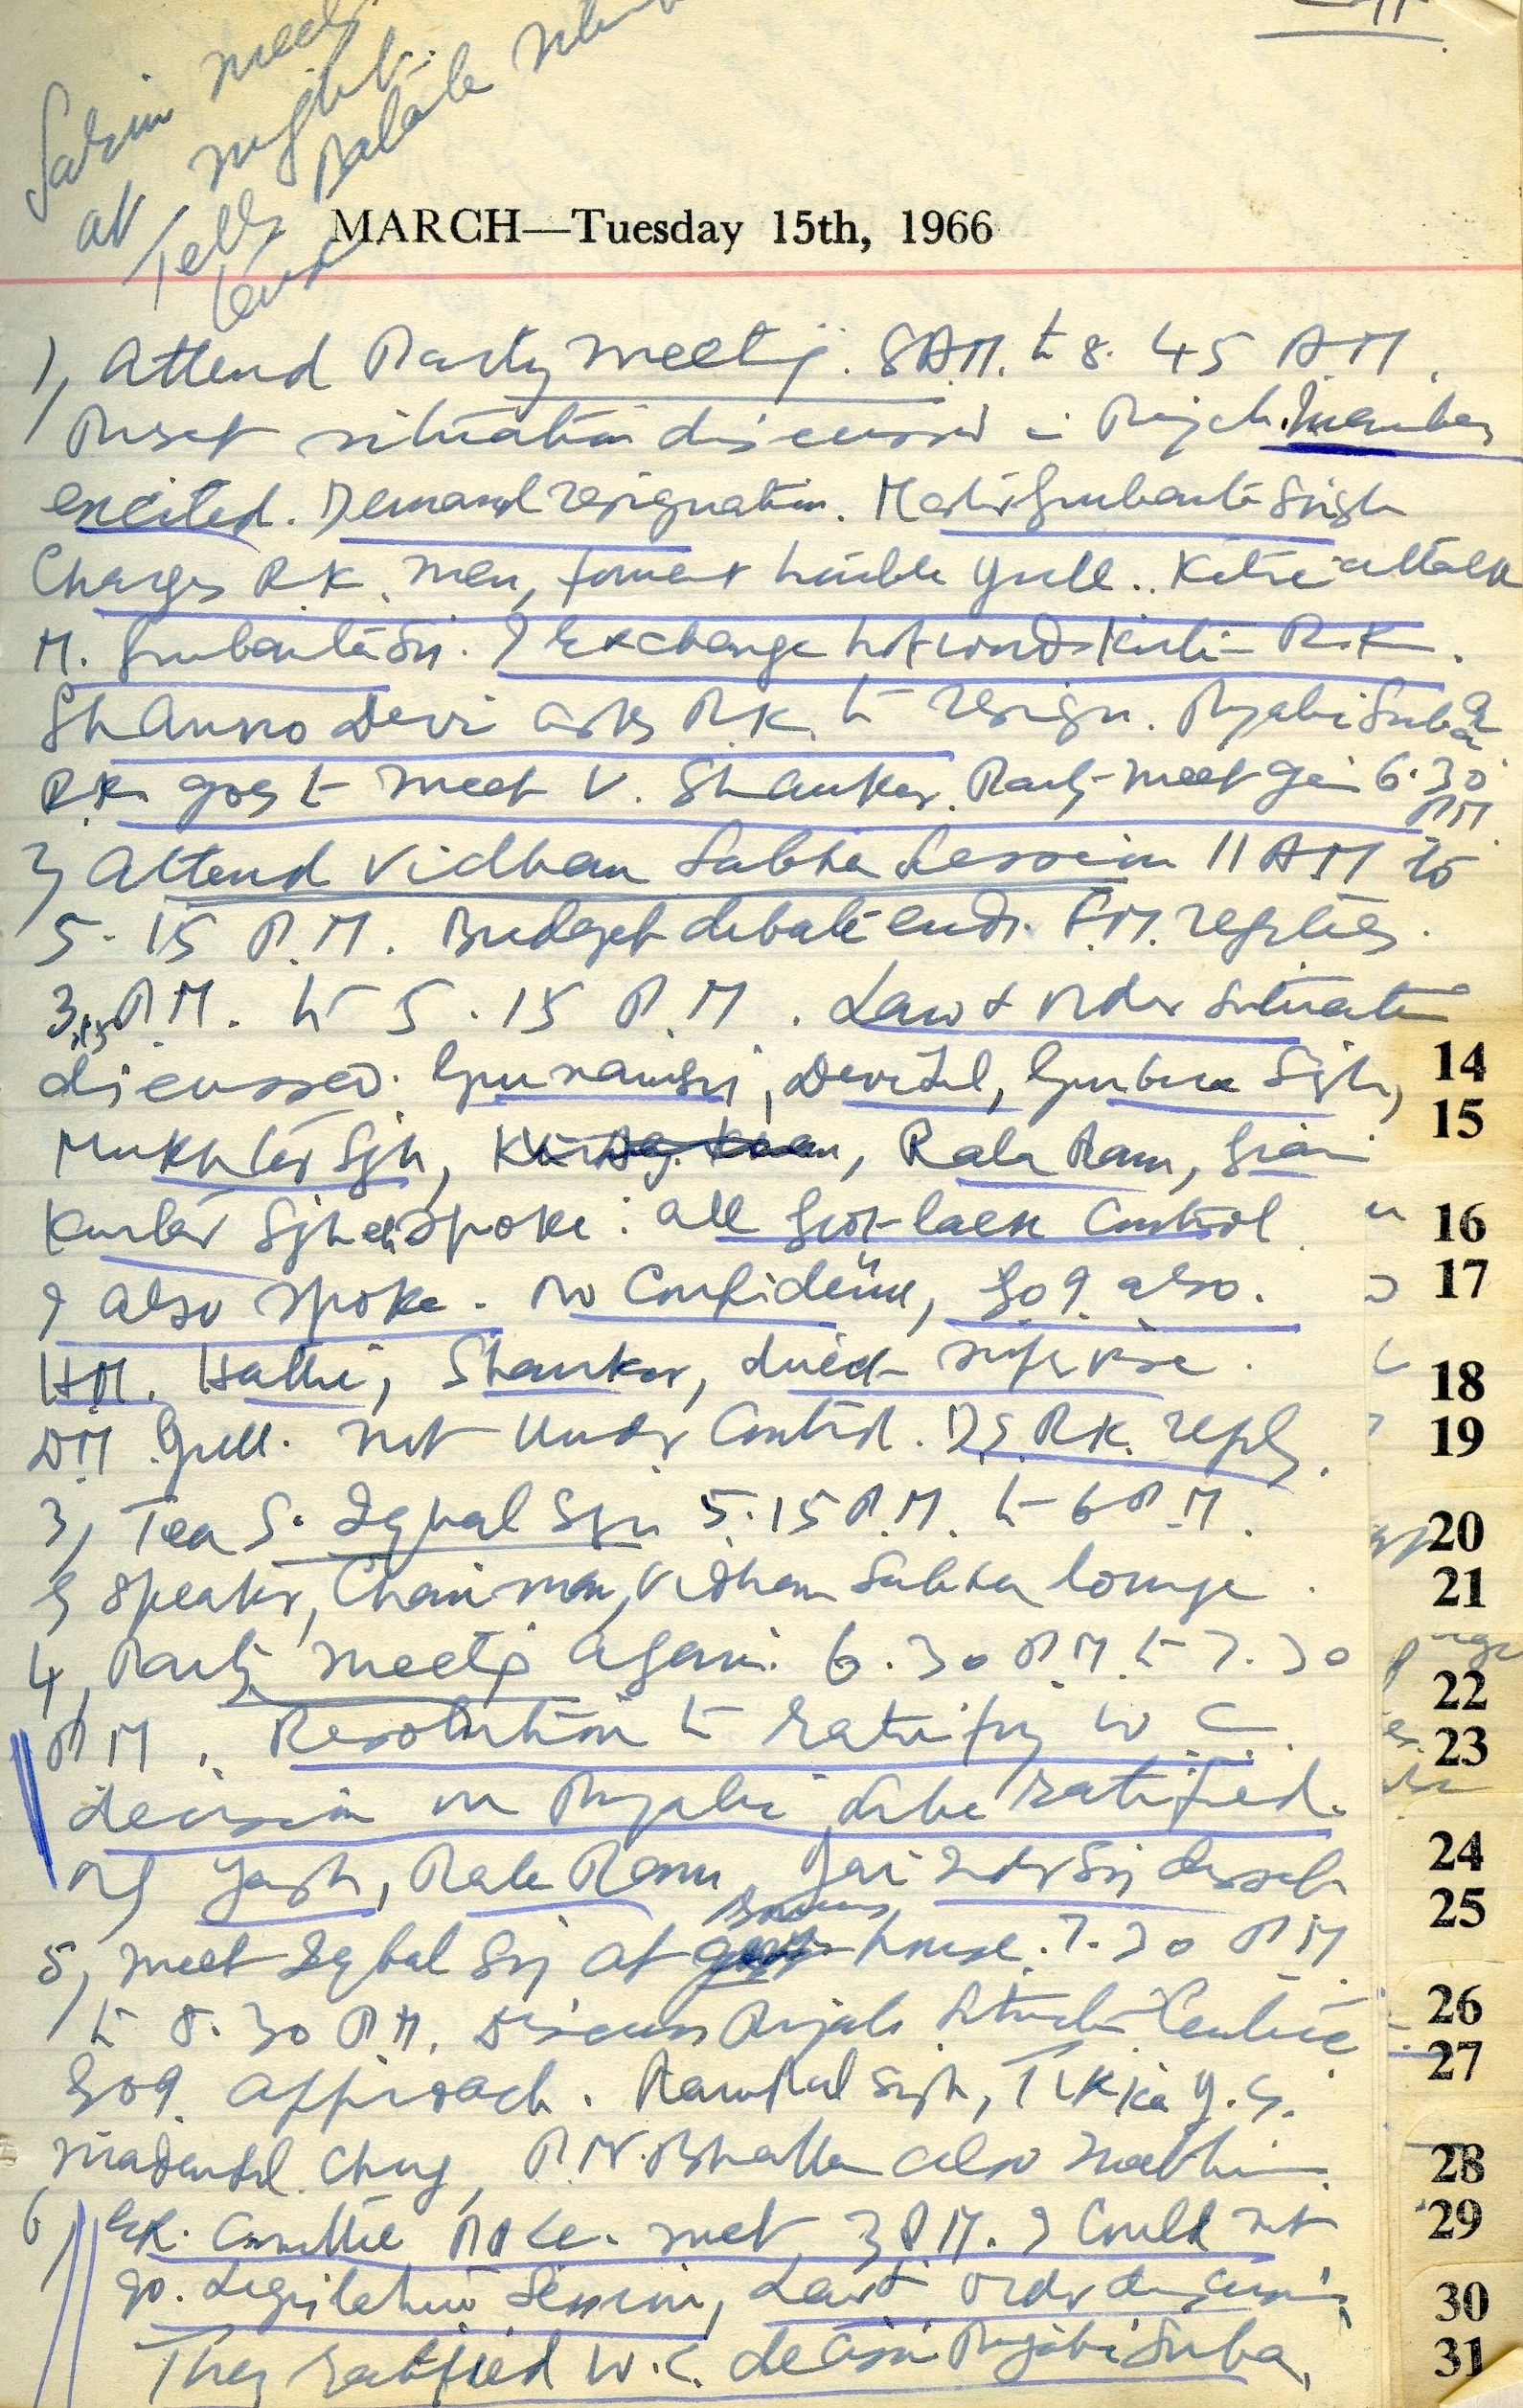 meet
at night.
Tells
MARCH—Tuesday 15th, 1966
1, Attend Party meeting. 8 A.M. to 8.45 A.M.
Preset situation discussed in Punjab. Members
excited. Demand resignation. Gurbanta Singh
Charges R.K. men, foment trouble Gull.. attack
M. Gurbanta Sij. I exchange hot words R.K.
Shanno Devi asks R.K. to resign. Punjabi Suba
R.K. goes to meet V. Shanker. Party meet again 6.30 PM
2, Attend Vidhan Sabha Session 11 AM to
5.15 P.M. Budget debate ends. F.M. replies.
P.M. to 5.15 P.M. Law & order situation
discussed. Gurnam Sij, Devi Lal, Singh,
Mukhtar Sjh, Rala Ram, Giani
Kartar Sjh spoke: all Govt lack Control.
I also spoke. No Confidence, GOI also.
HM. Hathi, Shanker, direct supervise.
DM Gull. not under Control. DS, R.K. reply.
3, Tea S. Iqbal Sjn 5.15 P.M. to 6 P.M.
& Speaker, Chairman, Vidhan Sabha lounge.
4, Party meetig again. 6.30 P.M. to 7.30
P.M. Resolution to ratify W.C.
decision on Punjabi Suba ratified.
Yash, Rala Ram, Jai Inder Sij dissent
5, meet Iqbal Sij at house. 7.30 PM
to 8.30 P.M. Discuss Punjab situation Centre
GOI approach. Rampal Singh, Tikka J.S.
Madanlal, P.N. Bhalla also meet him
6, Ex. Committee PPCC. met 3 P.M. I Could not
go. Legislative Session, Law & order discussion,
They ratified W.C. decision Punjabi Suba,
14
15
16
17
18
19
20
21
22
23
24
25
26
27
28
29
30
31